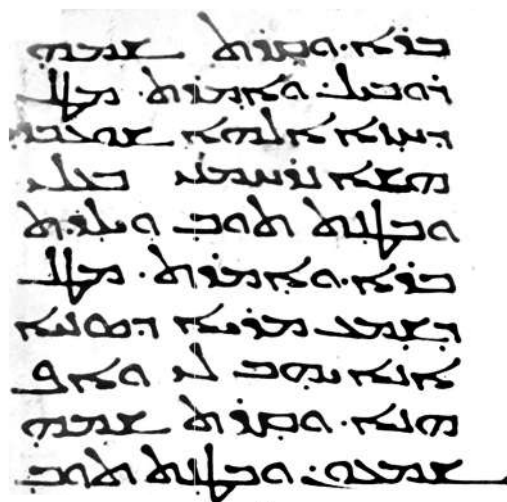 ܒܪܐ. ܘܩܪܬ ܫܡܗ
ܪܘܒܝܠ: ܘܐܡܪܬ. ܡܛܠ
ܕܚܙܐ ܐܠܗܐ ܫܘܥܒܕܝ
ܗܫܐ ܢܪܚܡܢܝ ܒܥܠܝ
ܘܒܛܢܬ ܬܘܒ ܘܝܠܕܬ
ܒܪܐ. ܘܐܡܪܬ. ܡܛܠ
ܕܫܡܥ ܡܪܝܐ ܕܣܢܝܐ
ܐܢܐ ܝܗܒ ܠܝ ܘܐܦ
ܗܢܐ. ܘܩܪܬ ܫܡܗ
ܫܡܥܘܢ: ܘܒܛܢܬ ܬܘܒ